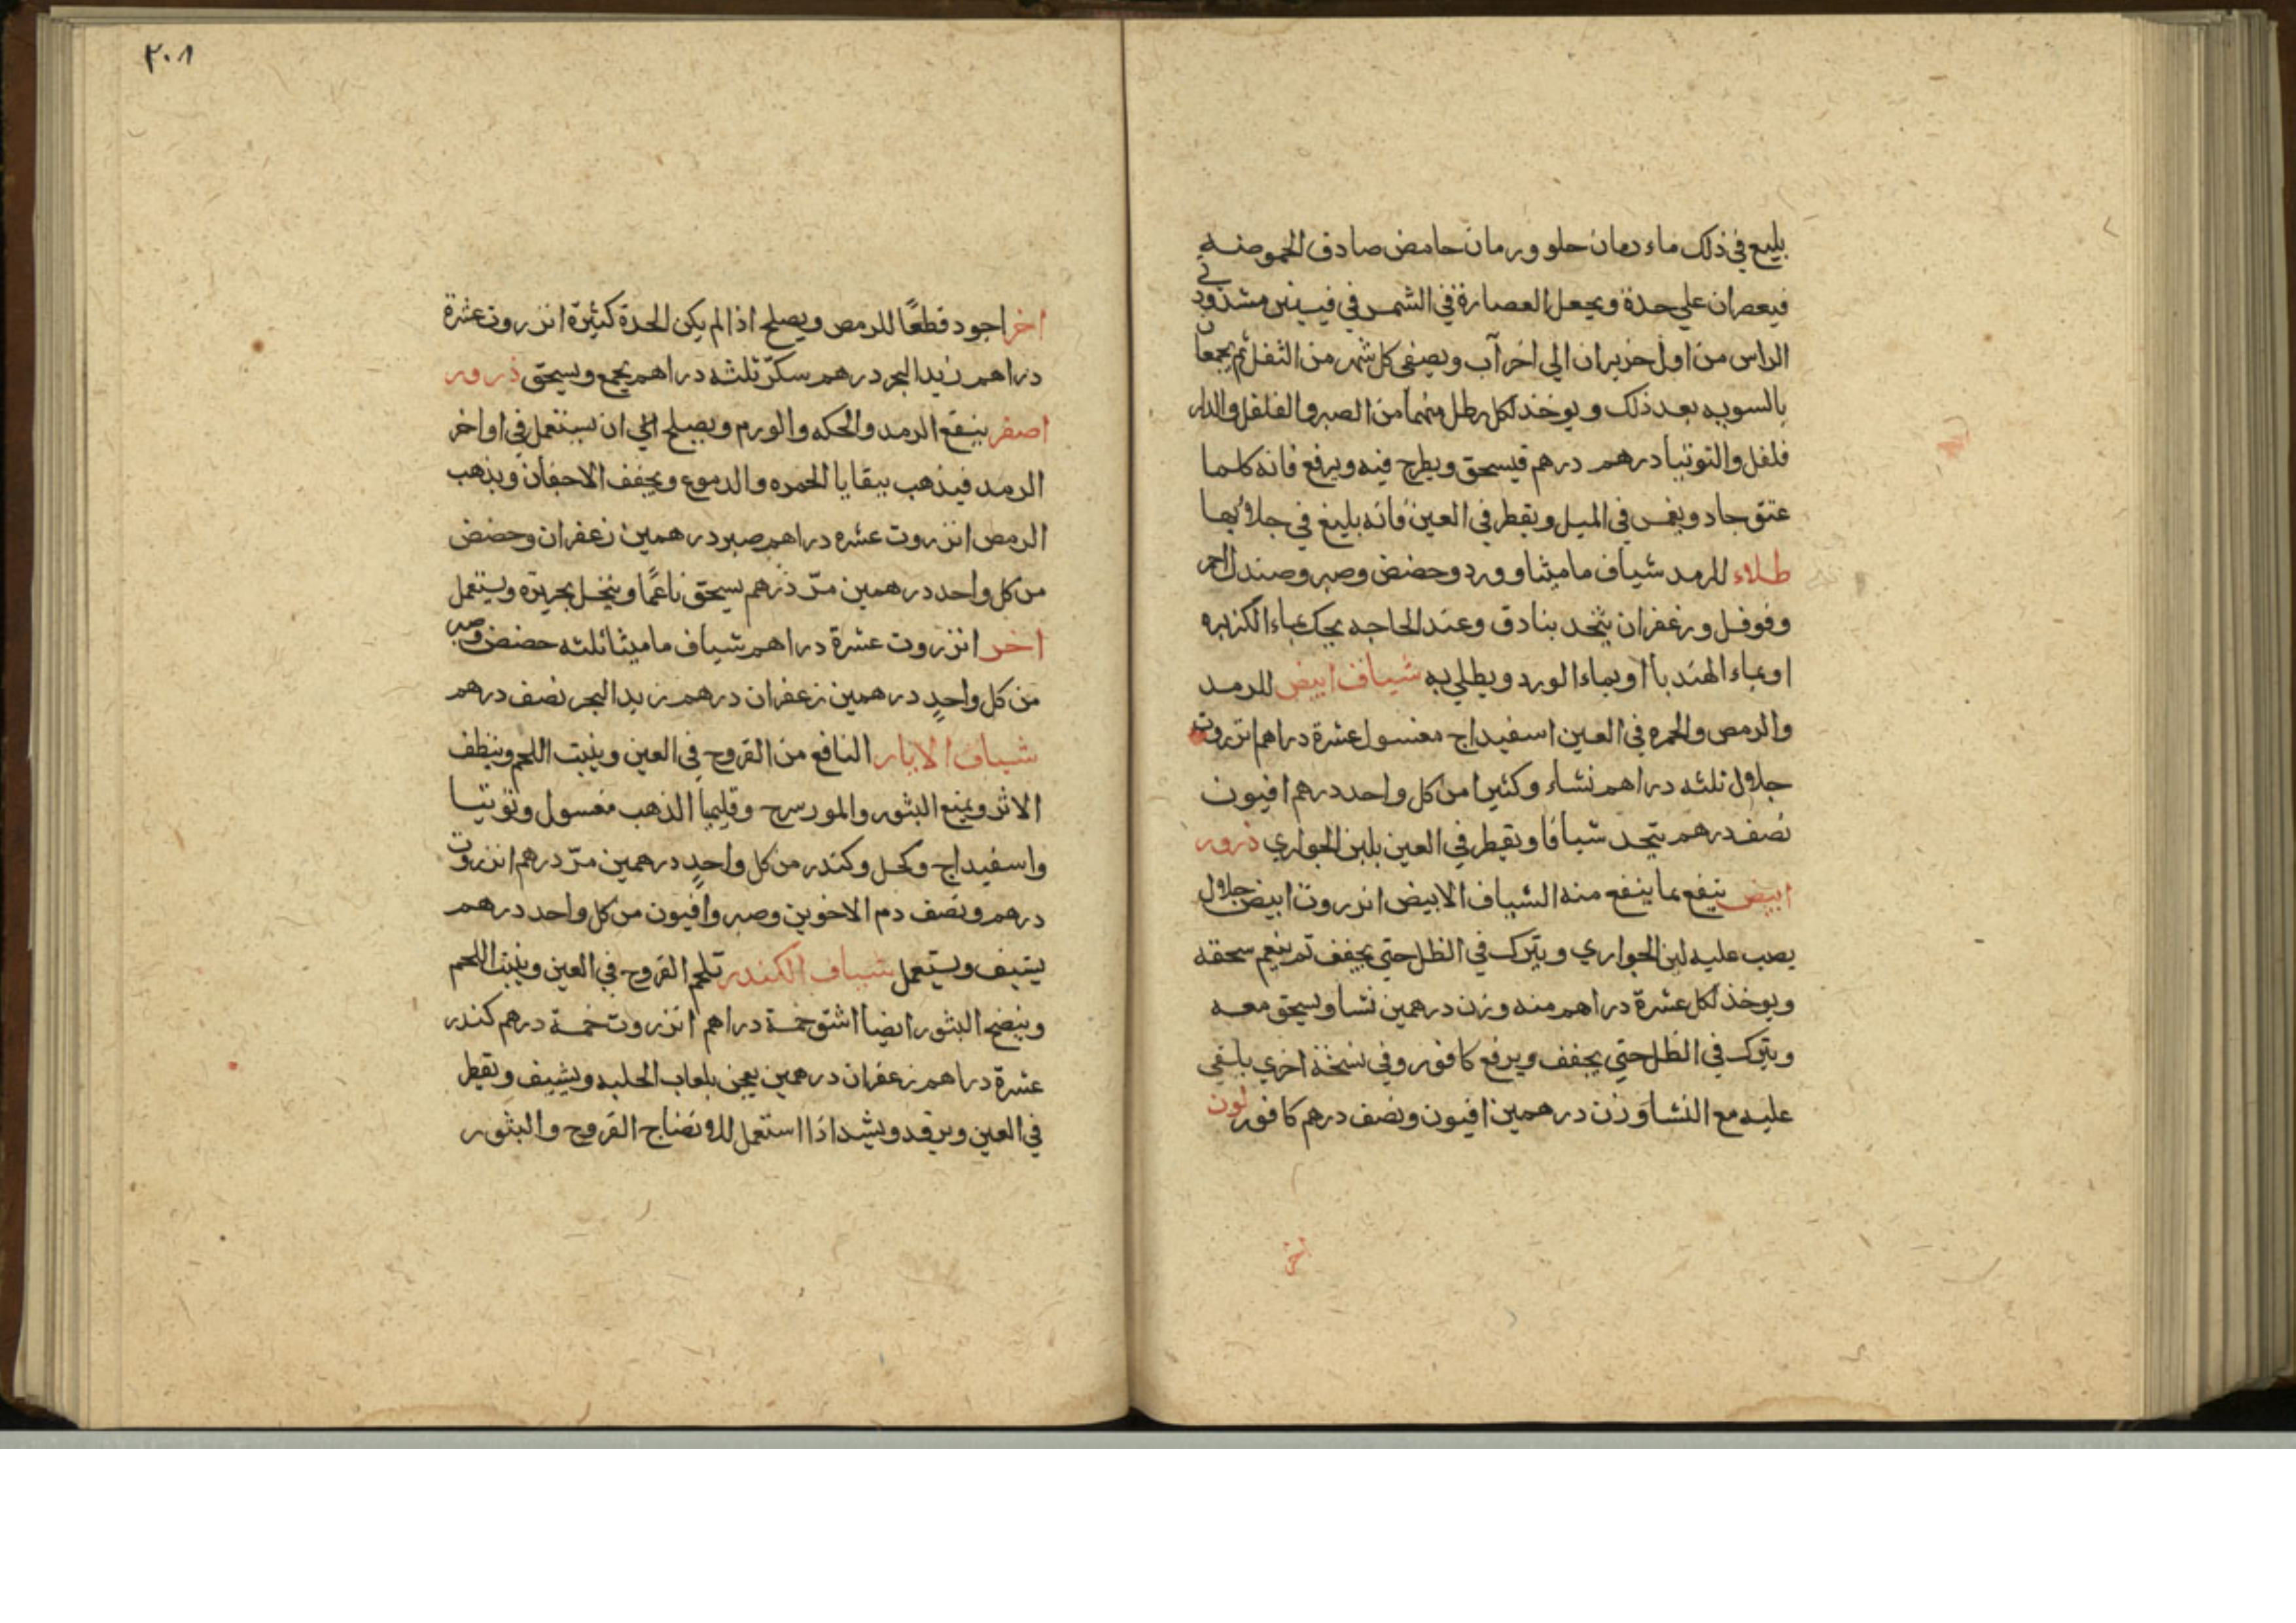 بليع في ذلك ماء رمان حلو ورمان حامض صادق الحموضه
فيعصران علي حدة ويجعل العصارة في الشمس في قنينتين مشدودتي
الراس من اول حزيران الي اخر آب ويصفي كل شهر من الثفل ثم يجمعان
بالسويه بعد ذلك ويوخذ لكل رطل منهما من الصبر والفلفل والدار
فلفل والتوتيا درهم درهم فيسحق ويطرح فيه ويرفع فانه كلما
عتق جاد ويغمس في الميل ويقطر في العين فانه بليغ في جلائها
طلاء للرمد شياف ماميثا وورد وحضض وصبر وصندل احمر
وفوفل وزعفران يتخد بنادق وعند الحاجه يحك بماء الكزبره
او بماء الهندبا او بماء الورد ويطلي به شياف ابيض للرمد
والرمص والحمره في العين اسفيداج مغسول عشرة دراهم انزروت
جلال ثلثه دراهم نشاء وكثيرا من كل واحد درهم افيون
نصف درهم يتخد شيافا ويقطر في العين بلبن الجواري ذرور
ابيض ينفع مما ينفع منه الشياف الابيض انزروت ابيض جلال
يصب عليه لبن الجواري ويترك في الظل حتي يجفف ثم ينعم سحقه
ويوخذ لكل عشرة دراهم منه وزن درهمين نشا ويسحق معه
ويترك في الظل حتي يجفف ويرفع كافور وفي نسخة اخري يلقي
عليه مع النشا وزن درهمين افيون ونصف درهم كافور لون
اخر
٢٠٨
اخر اجود قطعًا للرمص ويصلح اذا لم يكن الحدة كثيرة انزروت عشرة
دراهم زبد البحر درهم سكر ثلثه دراهم يجمع ويسحق ذرور
اصفر ينفع الرمد والحكه والورم ويصلح الي ان يستعمل في اواخر
الرمد فيذهب ببقايا الحمره والدموع ويجفف الاجفان ويذهب
الرمص انزروت عشره دراهم صبر درهمين زعفران وحضض
من كل واحد درهمين مرّ درهم يسحق ناعمًا وينخل بحريرة ويستعمل
اخر انزروت عشرة دراهم شياف ماميثا ثلثه حضض وصبر
من كل واحدٍ درهمين زعفران درهم زبد البحر نصف درهم
شياف الابار النافع من القروح في العين وينبت اللحم وينظف
الاثر ويمنع البثور والمورسرج وقليميا الذهب مغسول وتوتيا
واسفيداج وكحل وكندر من كل واحدٍ درهمين مرّ درهم انزروت
درهم ونصف دم الاخوين وصبر وافيون من كل واحد درهم
يشيف ويستعمل شياف الكندر تلحم القروح في العين وينبت اللحم
وينضج البثور ايضا اشق خمسة دراهم انزروت خمسة درهم كندر
عشرة دراهم زعفران درهمين يعجن بلعاب الحلبه ويشيف ويقطر
في العين ويرقد ويشد اذا استعمل للانضاج القروح والبثور